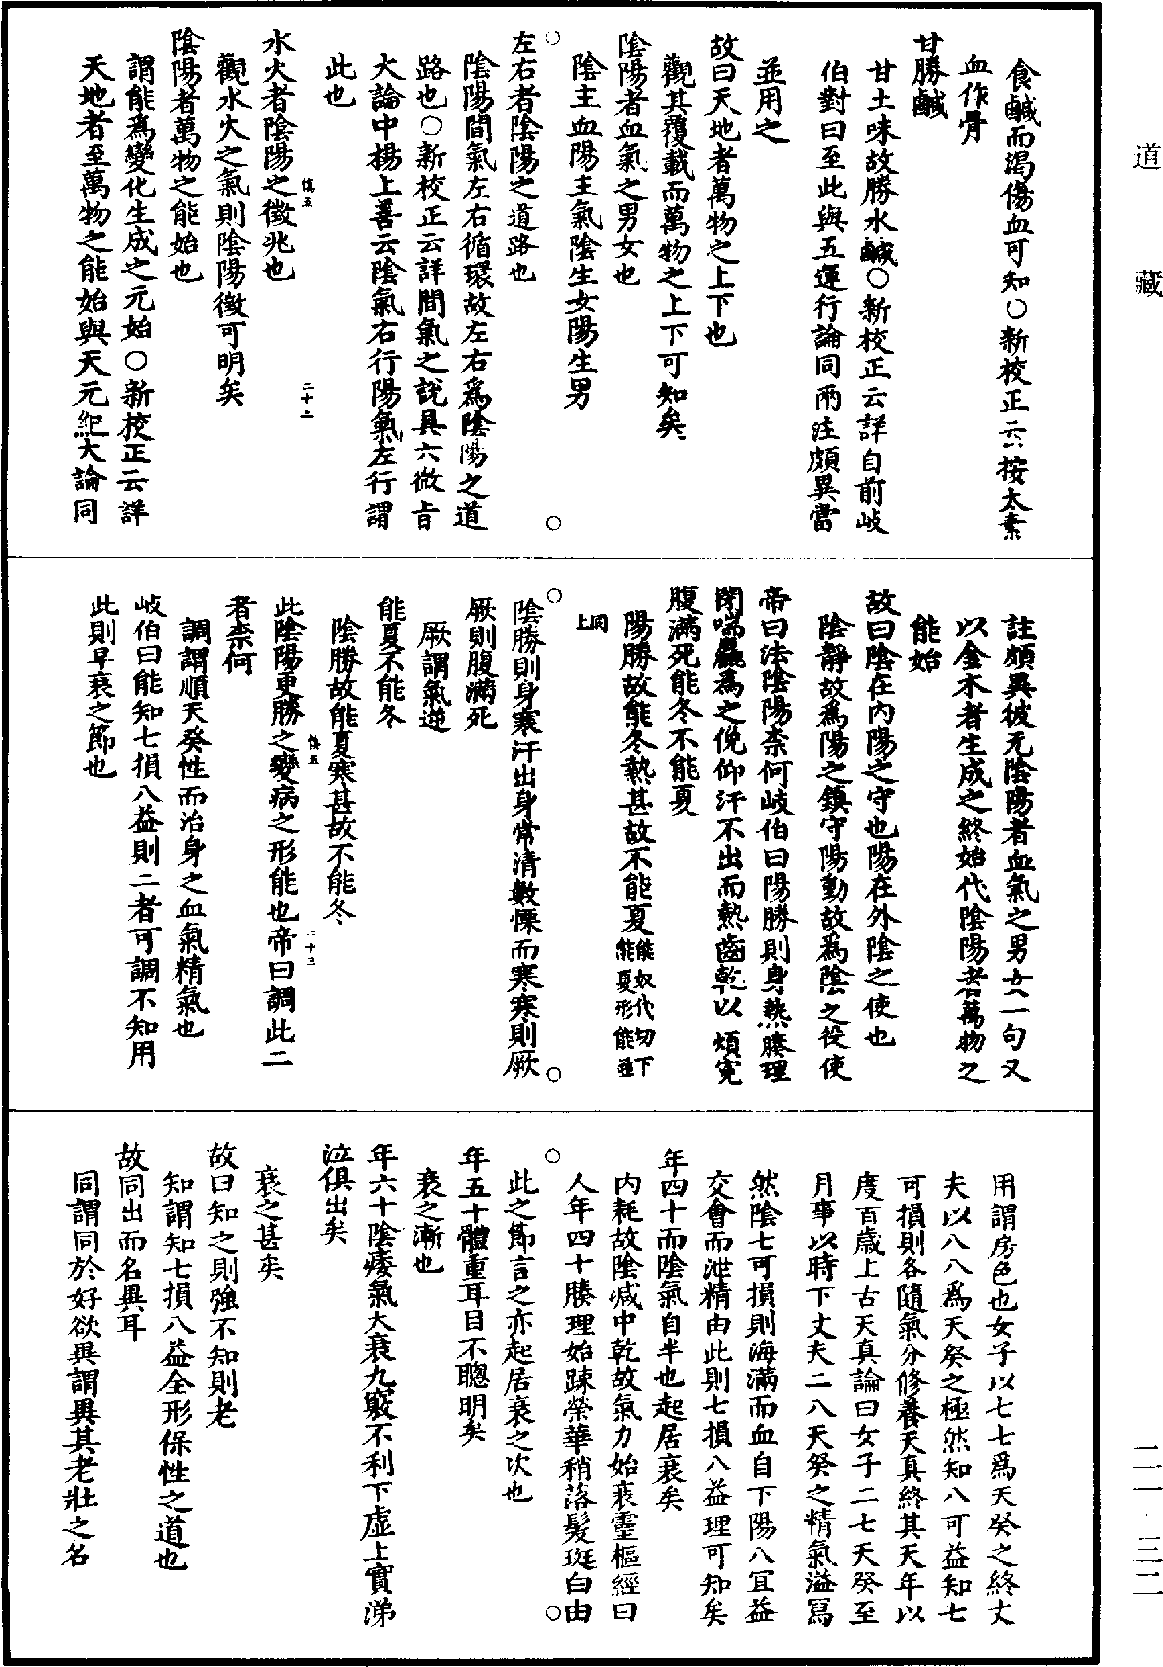 道藏
食鹹而渴傷血可知○新校正云按太素
血作骨
甘勝鹹
甘土味故勝水鹹○新校正云詳自前岐
伯對曰至此與五運行論同兩注頗異當
並用之
故曰天地者萬物之上下也
觀其覆載而萬物之上下可知矣
陰陽者血氣之男女也
陰主血陽主氣陰生女陽生男
左右者陰陽之道路也
陰陽間氣左右循環故左右爲陰陽之道
路也○新校正云詳間氣之說具六微旨
大論中楊上善云陰氣右行陽氣左行謂
此也
水火者陰陽之徵兆也
慎五
二十二
觀水火之氣則陰陽徵可明矣
陰陽者萬物之能始也
謂能爲變化生成之元始○新校正云詳
天地者至萬物之能始與天元紀大論同
註頗異彼无陰陽者血氣之男女一句又
以金木者生成之終始代陰陽者萬物之
能始
故曰陰在內陽之守也陽在外陰之使也
陰靜故爲陽之鎮守陽動故爲陰之役使
帝曰法陰陽柰何岐伯曰陽勝則身熱腠理
閉喘麤爲之俛仰汗不出而熱齒乾以煩寃
腹滿死能冬不能夏
陽勝故能冬熱甚故不能夏能奴代切下
能夏形能並
同上
陰勝則身寒汗出身常清數慄而寒寒則厥
厥則腹滿死
厥謂氣逆
能夏不能冬
陰勝故能夏寒甚故不能冬
此陰陽更勝之變病之形能也帝曰調此二
慎五
二十三
者柰何
調謂順天癸性而治身之血氣精氣也
岐伯曰能知七損八益則二者可調不知用
此則早衰之節也
用謂房色也女子以七七爲天癸之終丈
夫以八八爲天癸之極然知八可益知七
可損則各隨氣分修養天真終其天年以
度百歲上古天真論曰女子二七天癸至
月事以時下丈夫二八天癸之精氣溢寫
然陰七可損則海滿而血自下陽八宜益
交會而泄精由此則七損八益理可知矣
年四十而陰氣自半也起居衰矣
內耗故陰減中乾故氣力始衰靈樞經曰
人年四十腠理始踈榮華稍落髮斑白由
此之節言之亦起居衰之次也
年五十體重耳目不聰明矣
衰之漸也
年六十陰痿氣大衰九竅不利下虛上實涕
泣俱出矣
衰之甚矣
故曰知之則強不知則老
知謂知七損八益全形保性之道也
故同出而名異耳
同謂同於好欲異謂異其老壯之名
二一·三二